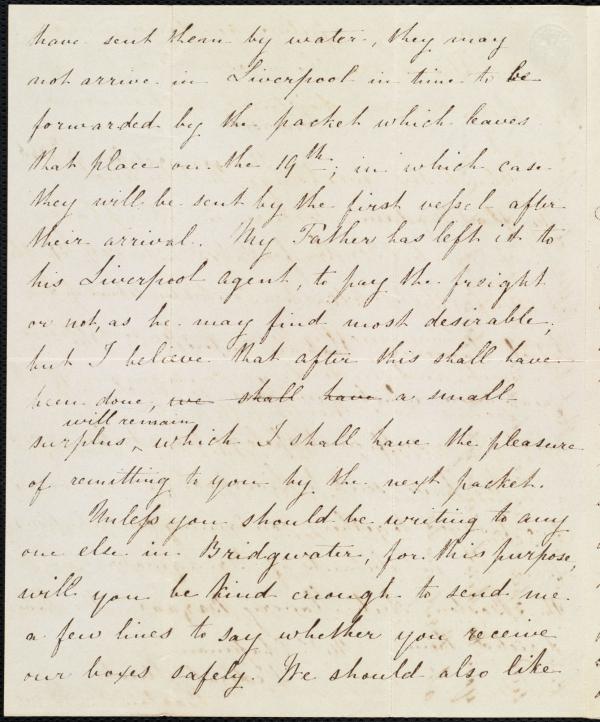 have sent them by water, they may
not arrive in Liverpool in time to be
forwarded by the packet which leaves
that place on the 19th; in which case
they will be sent by the first vessel after
their arrival. My Father has left it to
his Liverpool agent, to pay the freight
or not, as he may find most desirable;
but I believe that after this shall have
been done, we shall have a small
will remain
surplus, which I shall have the pleasure
of remitting to you by the next packet.
Unless you should be writing to any
one else in Bridgwater, for this purpose,
will you be kind enough to send me
a few lines to say whether you receive
our boxes safely. We should also like